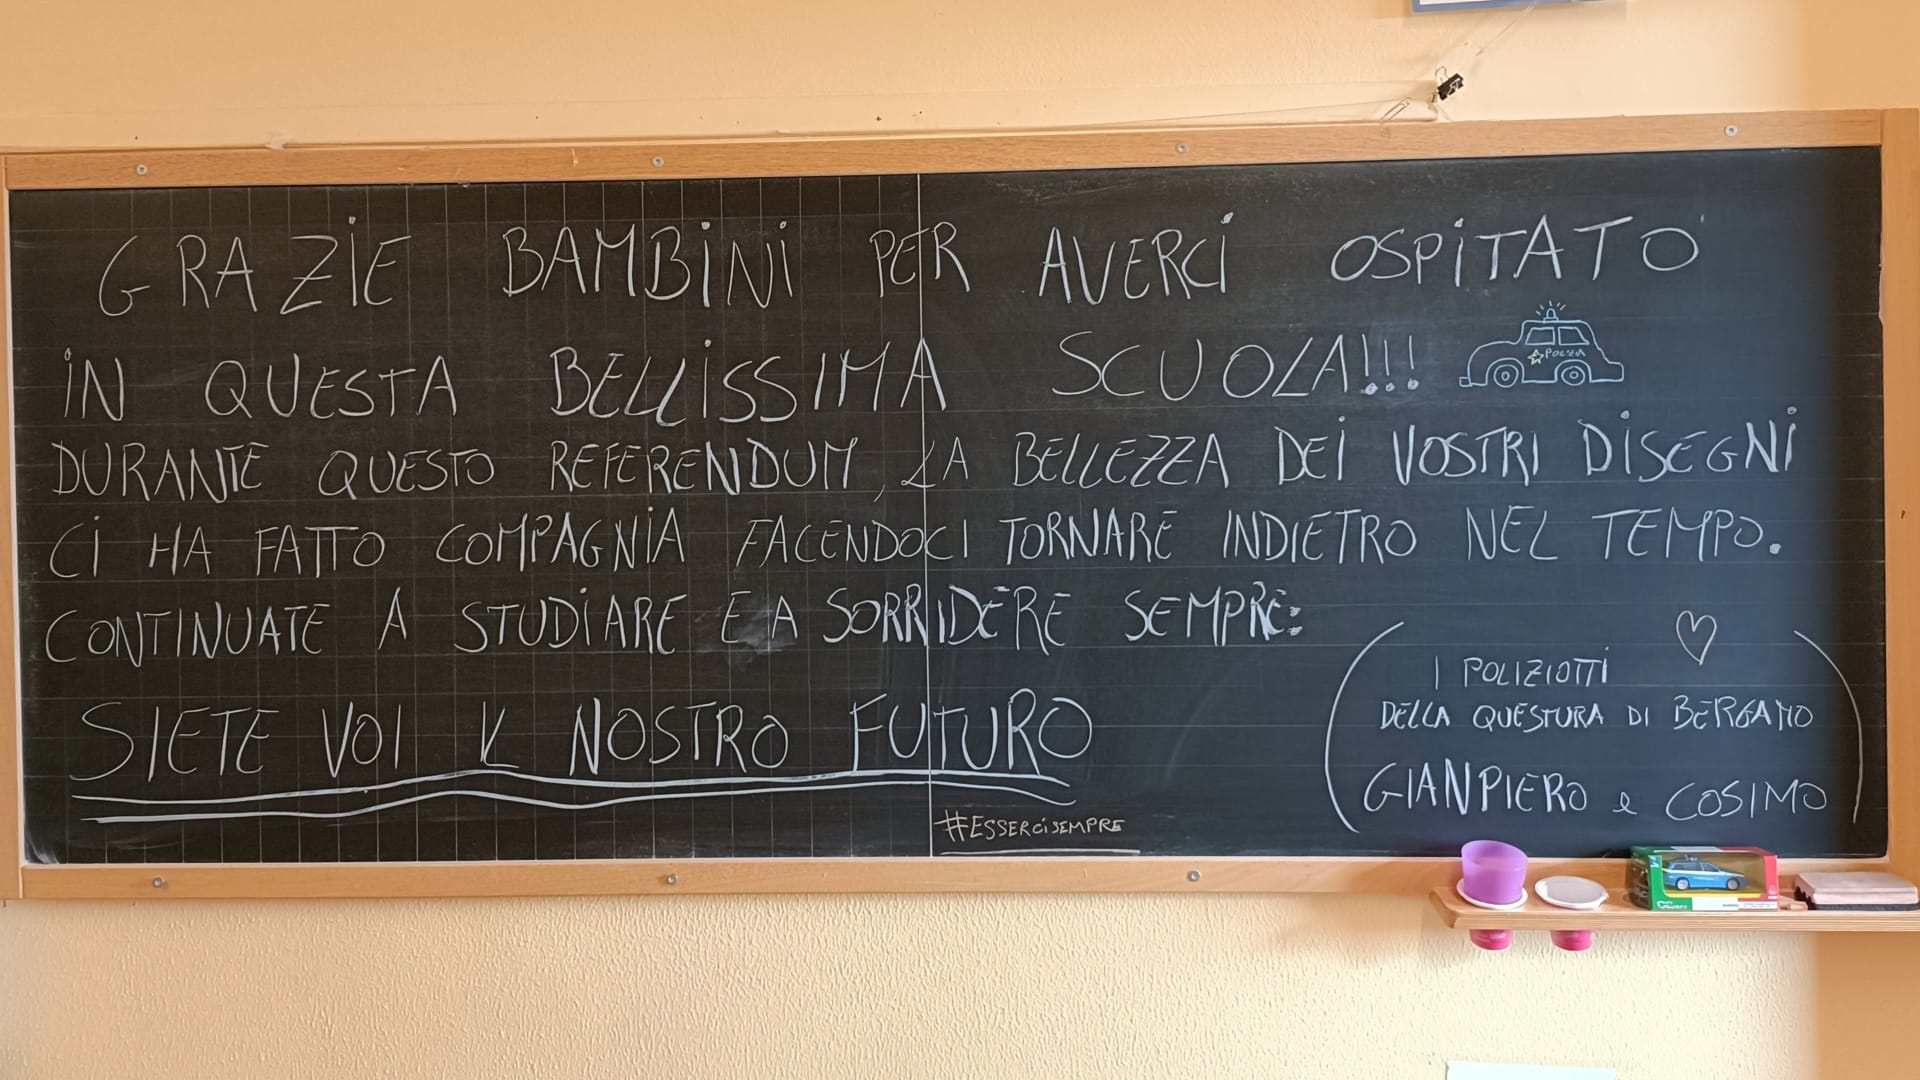 GRAZIE BAMBINI PER AVERCI OSPITATO
IN QUESTA BELLISSIMA SCUOLA!!!
POLIZIA
DURANTE QUESTO REFERENDUM, LA BELLEZZA DEI VOSTRI DISEGNI
CI HA FATTO COMPAGNIA FACENDOCI TORNARE INDIETRO NEL TEMPO.
CONTINUATE A STUDIARE E A SORRIDERE SEMPRE:
SIETE VOI IL NOSTRO FUTURO
#ESSERCISEMPRE
(I POLIZIOTTI
DELLA QUESTURA DI BERGAMO
GIANPIERO e COSIMO)